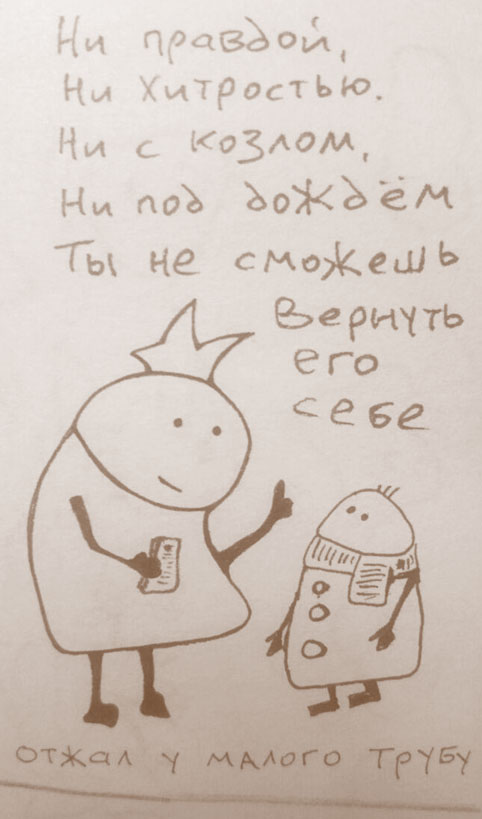 Ни правдой,
Ни хитростью.
Ни с козлом,
Ни под дождём
Ты не сможешь
Вернуть
его
себе
отжал у малого трубу